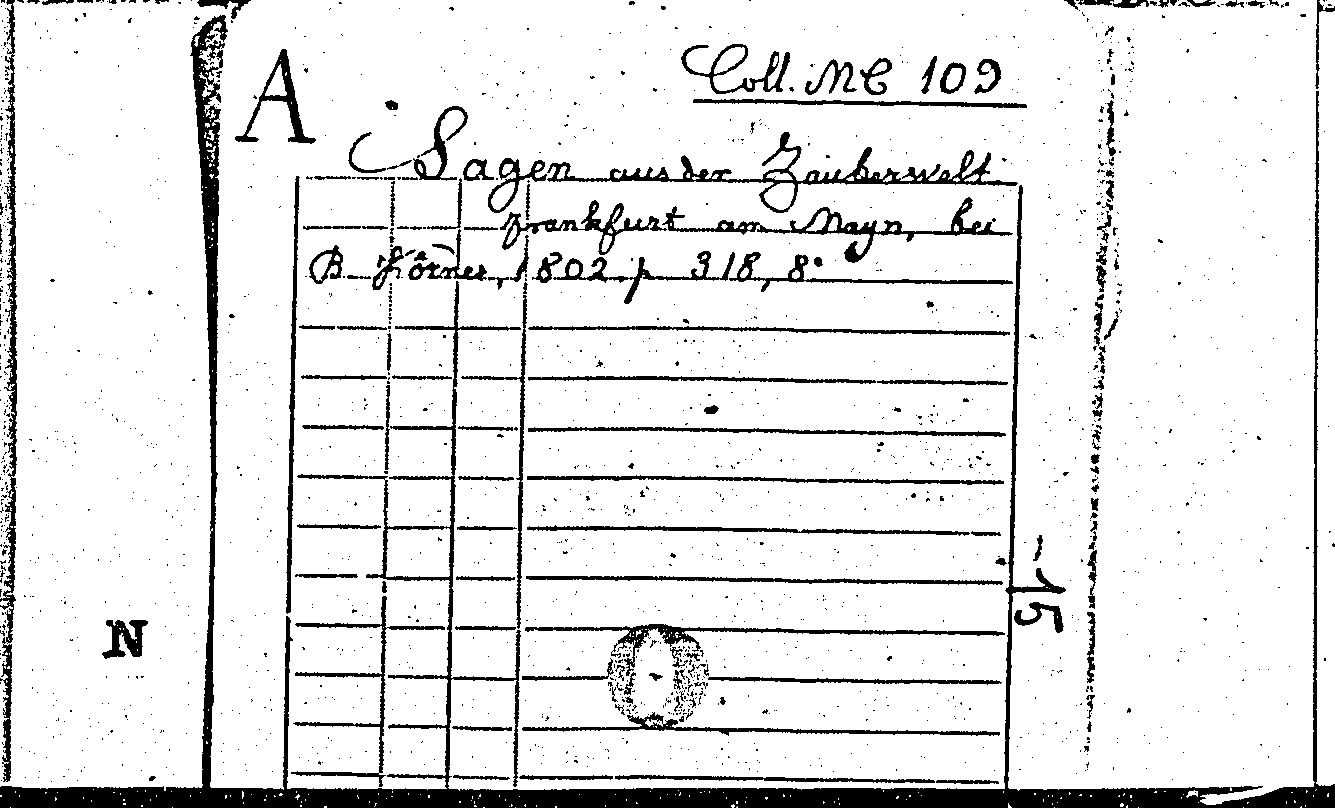 Coll. MC 109
A
Sagen aus der Zauberwelt.
Frankfurt am Mayn, bei
B. Körner, 1802. p 318, 8°
-15
N